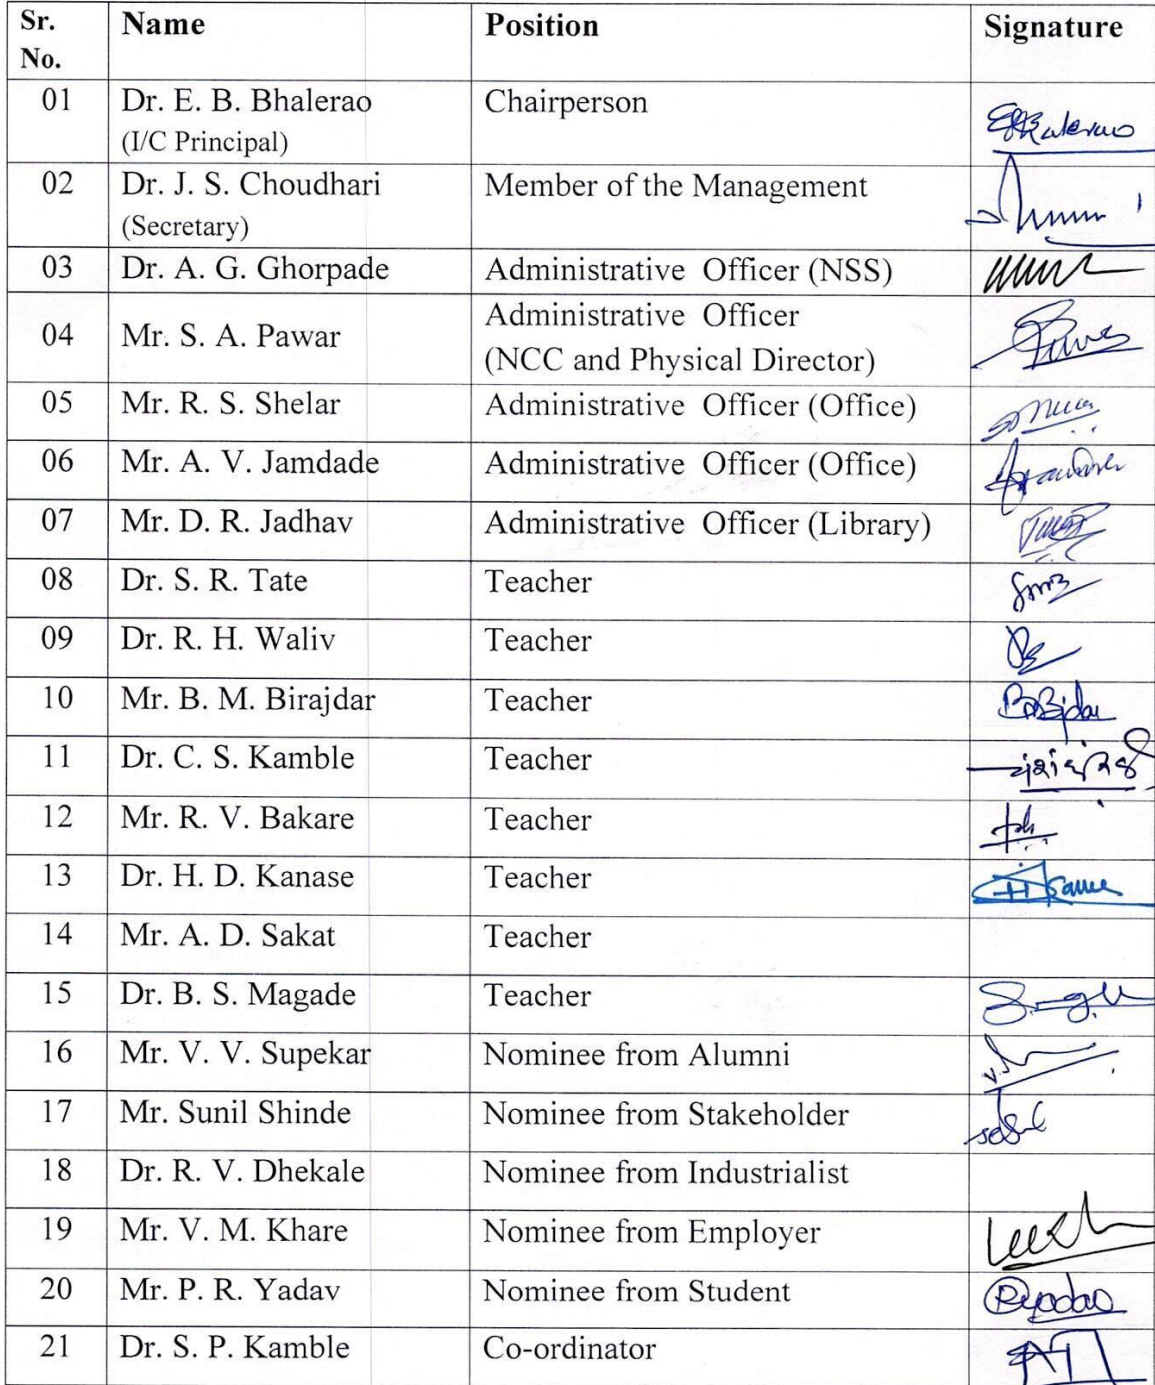 Sr. No. Name Position Signature
01 Dr. E. B. Bhalerao Chairperson
(I/C Principal)
02 Dr. J. S. Choudhari Member of the Management
(Secretary)
03 Dr. A. G. Ghorpade Administrative Officer (NSS)
04 Mr. S. A. Pawar Administrative Officer
(NCC and Physical Director)
05 Mr. R. S. Shelar Administrative Officer (Office)
06 Mr. A. V. Jamdade Administrative Officer (Office)
07 Mr. D. R. Jadhav Administrative Officer (Library)
08 Dr. S. R. Tate Teacher
09 Dr. R. H. Waliv Teacher
10 Mr. B. M. Birajdar Teacher
11 Dr. C. S. Kamble Teacher
12 Mr. R. V. Bakare Teacher
13 Dr. H. D. Kanase Teacher
14 Mr. A. D. Sakat Teacher
15 Dr. B. S. Magade Teacher
16 Mr. V. V. Supekar Nominee from Alumni
17 Mr. Sunil Shinde Nominee from Stakeholder
18 Dr. R. V. Dhekale Nominee from Industrialist
19 Mr. V. M. Khare Nominee from Employer
20 Mr. P. R. Yadav Nominee from Student
21 Dr. S. P. Kamble Co-ordinator